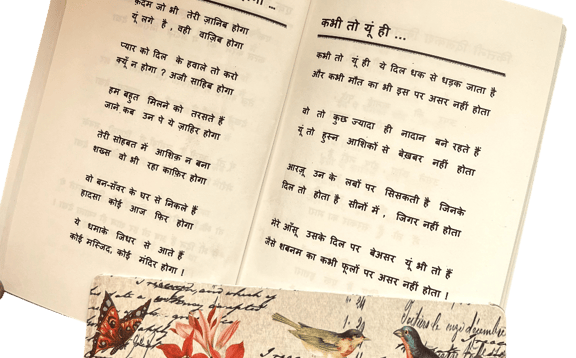 क़दम जो भी तेरी ज़ानिब होगा
यूं लगे है, वही वाज़िब होगा
प्यार को दिल के हवाले तो करो
क्यूँ न होगा? अजी साहिब होगा
हम बहुत मिलने को तरसते हैं
जाने कब उन पे ये ज़ाहिर होगा
तेरी सोहबत में आशिक़ न बना
शख्स वो भी रहा काफ़िर होगा
वो बन-सँवर के घर से निकले हैं
हादसा कोई आज फिर होगा
ये धमाके जिधर से आते हैं
कोई मस्जिद, कोई मंदिर होगा!
कभी तो यूं ही ...
कभी तो यूं ही ये दिल धक से धड़क जाता है
और कभी मौत का भी इस पर असर नहीं होता
वो तो कुछ ज्यादा ही नादान बने रहते हैं
यूं तो हुस्न आशिकों से बेख़बर नहीं होता
आरज़ू उन के लबों पर सिसकती है जिनके
दिल तो होता है सीनों में, जिगर नहीं होता
मेरे आँसू उसके दिल पर बेअसर यूं भी तो हैं
जैसे शबनम का कभी फूलों पर असर नहीं होता!